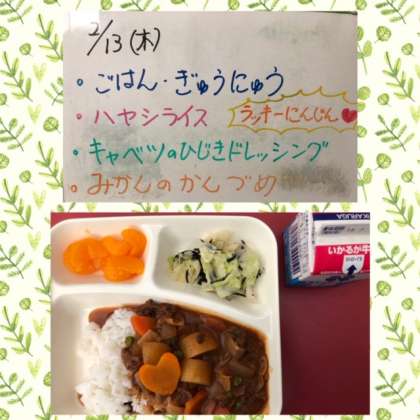 2/13(木)
・ごはん・ぎゅうにゅう
・ハヤシライス ラッキーにんじん♥
・キャベツのひじきドレッシング
・みかんのかんづめ
IKARUGA
いかるが牛